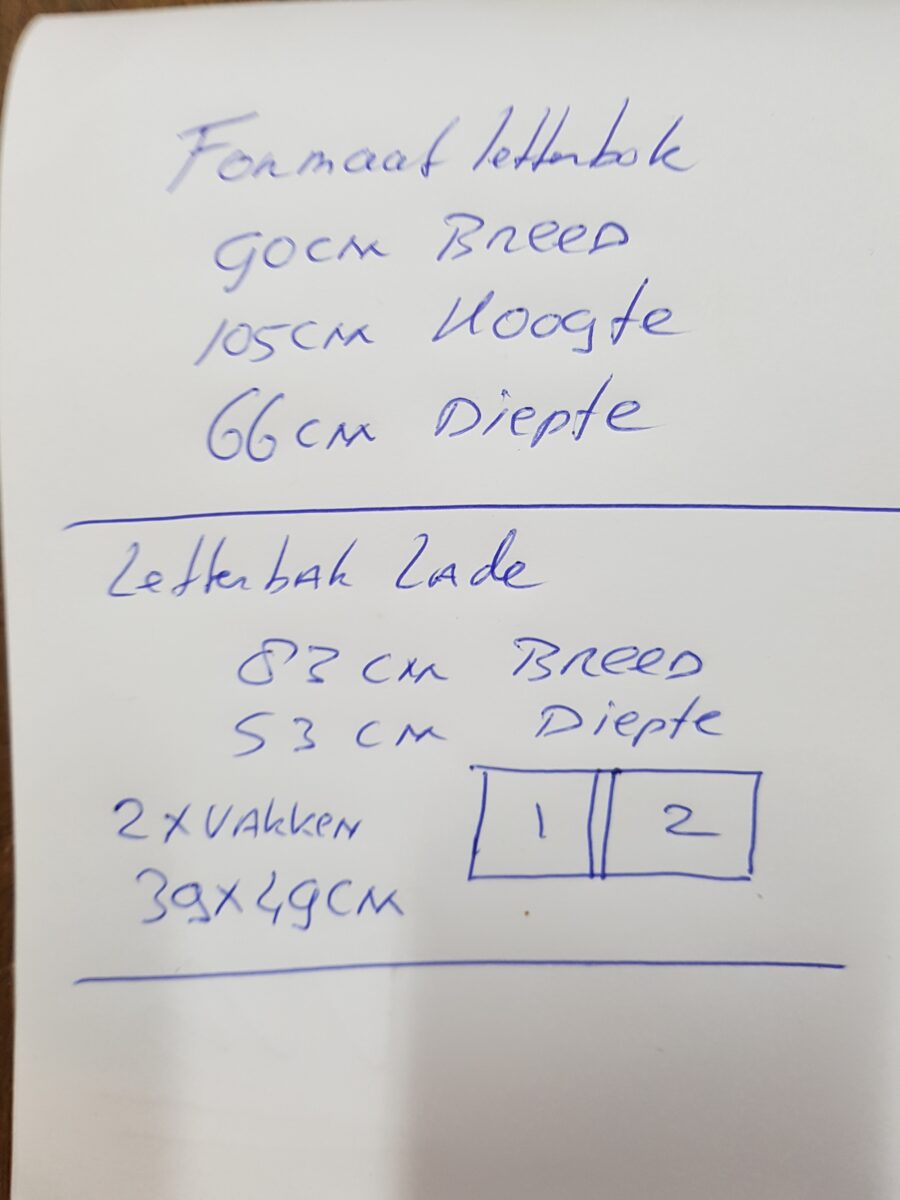 Formaat letterbok
90CM BREED
105CM Hoogte
66CM Diepte
Letterbak Lade
83 CM BREED
53 CM Diepte
2 x VAKKEN
39x49CM
1 2